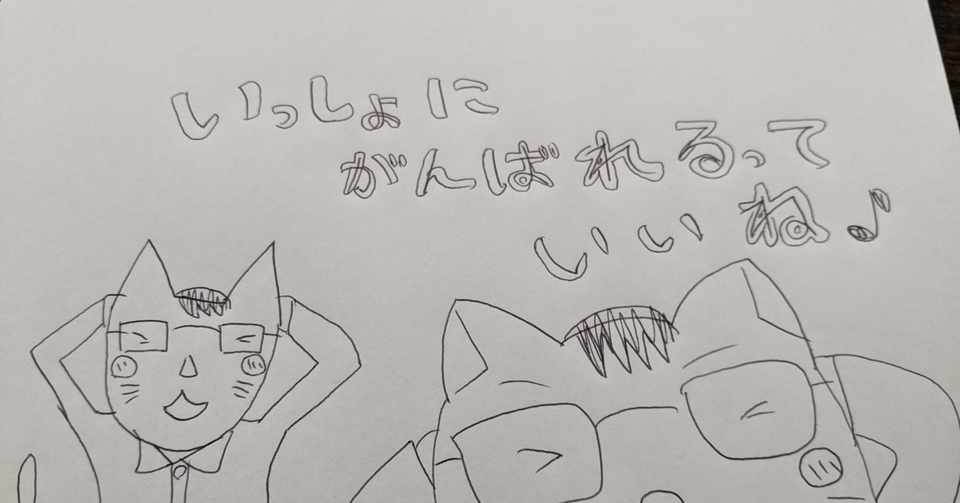 いっしょに
がんばれるって
いいね♪